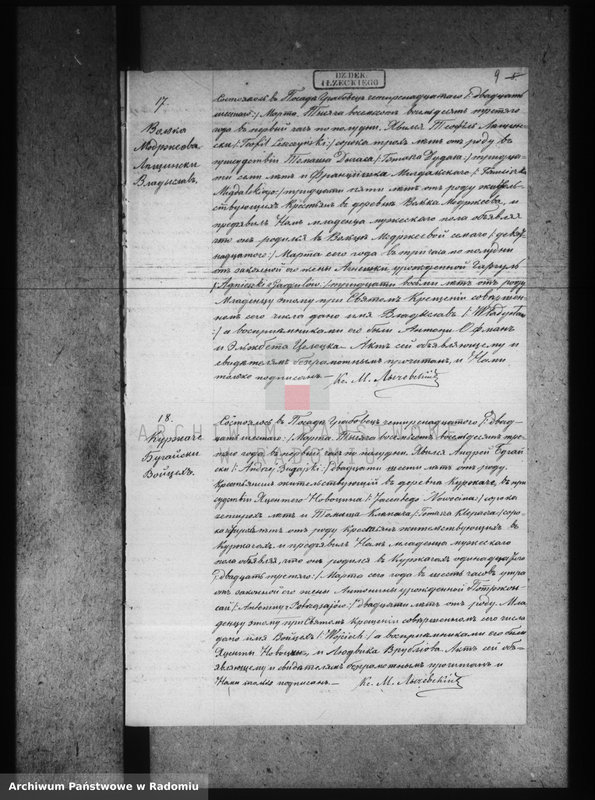 UZ DEK.
IŁŻECKIEGO
9
17.
Волка
Модржеова
Лащински
Владыслав.
Состоялось в Посаде Грабовец четырнадцатого /: двадцать
шестаго :/ Марта, Тысяча восемьсот восемьдесят третяго
года в первый час по полудни. Явился Теофиль Лащин-
ски /: Teofil Leszczyński :/ сорока трех лет от роду в
присутствии Томаша Дугаса /: Tomasza :/ тридца-
ти семи лет и Францишка
:/ тридцати пяти лет от роду
крестьян в деревне Волька Модржеова, и
предъявил Нам младенца мужескаго пола объявляя
что он родился в Вольце Модржеовой седмаго /: девят-
надцатого :/ Марта сего года в три часа по полудни
от законной его жены Агнешки, урожденной
/: Agnieszki z :/ тридцати восьми лет от роду
Младенцу этому при Святом Крещении совершен-
ном сего числа дано имя Владыслав /: Władysław
:/ а восприемниками его были Антони
и Эльжбета Акт сей объявляющему и
свидетелям безграмотным прочитан, и Нами
только подписан — Кс. М.
18.
Куржаче
Бугайски
Войцех.
Состоялось в Посаде Грабовец четырнадцатого /: двад-
цать шестаго :/ Марта, Тысяча восемьсот восемьдесят тре-
тяго года, в первый час по полудни. Явился Андрей Бугай-
ски /: Andrzej Bugajski :/ двадцати шести лет от роду,
крестьянин жительствующий в деревне Куржаче, в при-
сутствии Яцентего Новоцина /: Jacentego Nowocina :/ сорока
четырех лет и Томаша /: Tomasza :/ соро-
ка лет от роду крестьян жительствующих в
Куржачах и предъявил Нам младенца мужескаго
пола объявляя, что он родился в Куржачах одинадцатого
/: двадцать третяго :/ Марта сего года в шесть часов утра
от законной его жены Антонины урожденной
/: Antoniny z :/ двадцати лет от роду. Мла-
денцу этому при Святом Крещении совершенном сего числа
дано имя Войцех /: Wojciech :/ а восприемниками его были
Яценты и Людвика Акт сей объ-
являющему и свидетелям безграмотным прочитан и
Нами только подписан. — Кс. М.
ARCHIWUM PAŃSTWOWE
W RADOMIU
Archiwum Państwowe w Radomiu